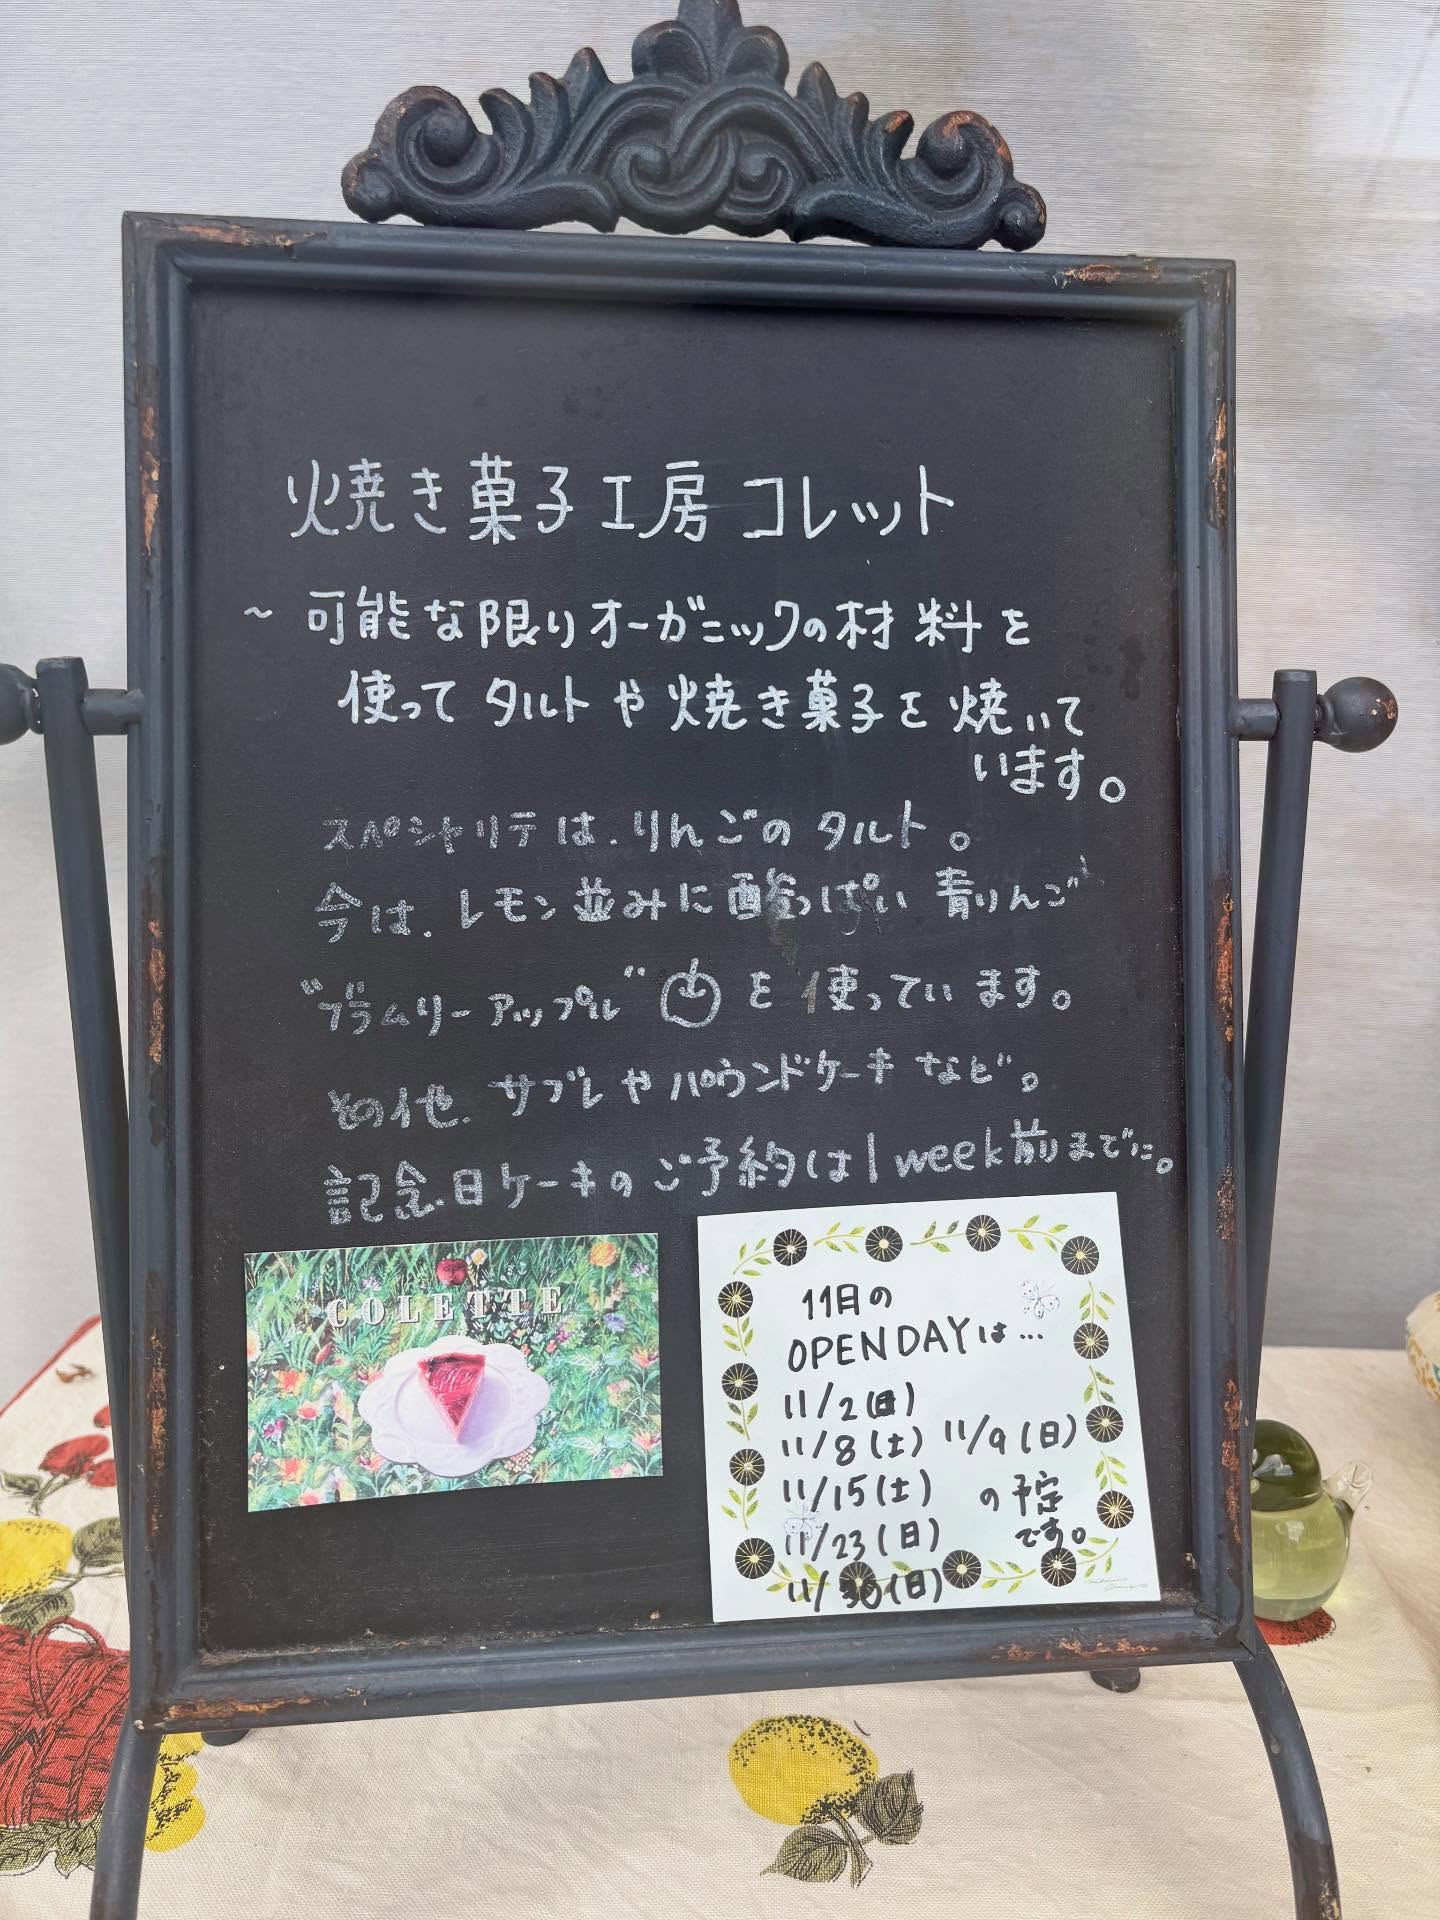 焼き菓子工房 コレット
~ 可能な限りオーガニックの材料を
使って タルトや焼き菓子を焼いて
います。
スペシャリテは、りんごのタルト。
今は、レモン並みに酸っぱい青りんご
"ブラムリーアップル" を使っています。
その他、サブレやパウンドケーキなど。
記念日ケーキのご予約は1week前までに。
COLETTE
11月の
OPEN DAYは…
11/2(日)
11/8(土) 11/9(日)
11/15(土) の予定
11/23(日) です。
11/30(日)